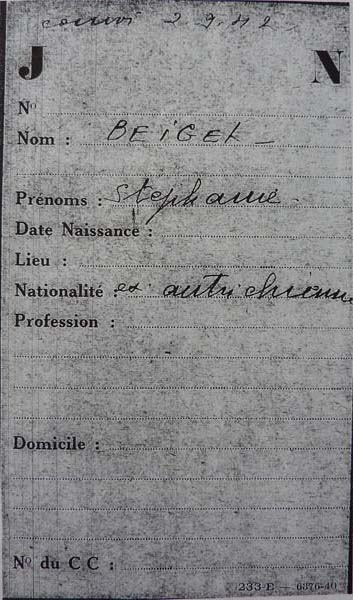 convoi 2 9.42
J N
No
Nom : BEIGEL
Prénoms : Stephanie
Date Naissance :
Lieu :
Nationalité : ex autrichienne
Profession :
Domicile :
No du C C :
233-E — 6376-40